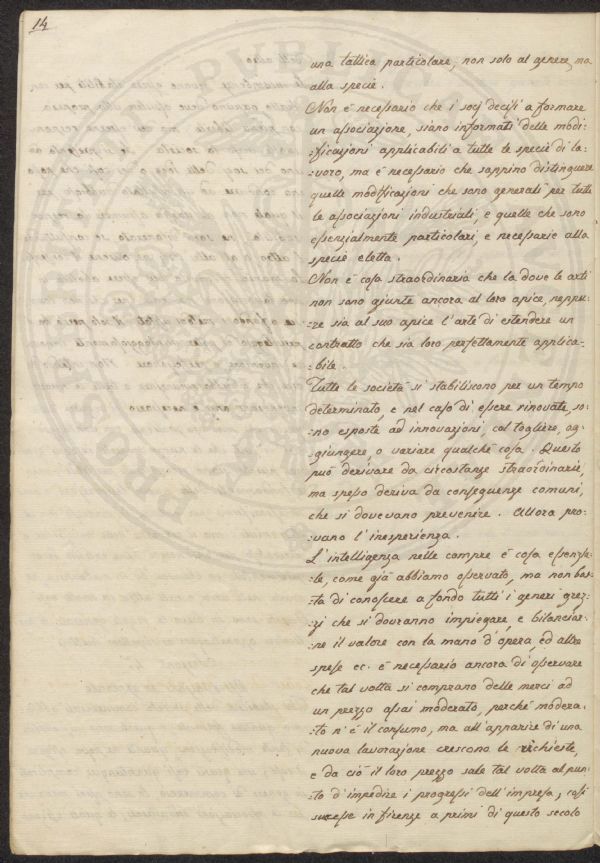 14
una tattica particolare, non solo al genere, ma
alla specie.
Non è necessario che i socj decisi a formare
un associazione, siano informati delle modi-
:ficazioni applicabili a tutte le specie di la-
:voro, ma è necessario che sappino distinguere
quelle modificazioni che sono generali per tutte
le associazioni industriali e quelle che sono
essenzialmente particolari e necessarie alla
specie eletta.
Non è cosa straordinaria che la dove le arti
non sono giunte ancora al loro apice, neppu-
:re sia al suo apice l'arte di estendere un
contratto che sia loro perfettamente applica-
:bile.
Tutte le società si stabiliscono per un tempo
determinato, e nel caso di essere rinovate, so-
:no esposte ad innovazioni, col togliere, ag-
:giungere, o variare qualche cosa. Questo
può derivare da circostanze straordinarie,
ma spesso deriva da conseguenze comuni,
che si dovevano prevenire. Allora pro-
:vano l'inesperienza.
L'intelligenza nelle compre è cosa essenzia-
:le, come già abbiamo osservato, ma non bas-
:ta di conoscere a fondo tutti i generi grez-
:zj che si dovranno impiegare e bilanciar-
:ne il valore con la mano d'opera, ed altre
spese ec. è necessario ancora di osservare
che tal volta si comprano delle merci ad
un prezzo assai moderato, perchè modera-
:to n'è il consumo, ma all'apparire di una
nuova lavorazione crescono le richieste,
e da ciò il loro prezzo sale tal volta al pun-
:to d'impedire i progressi dell'impresa, così
successe in firenze a primi di questo secolo